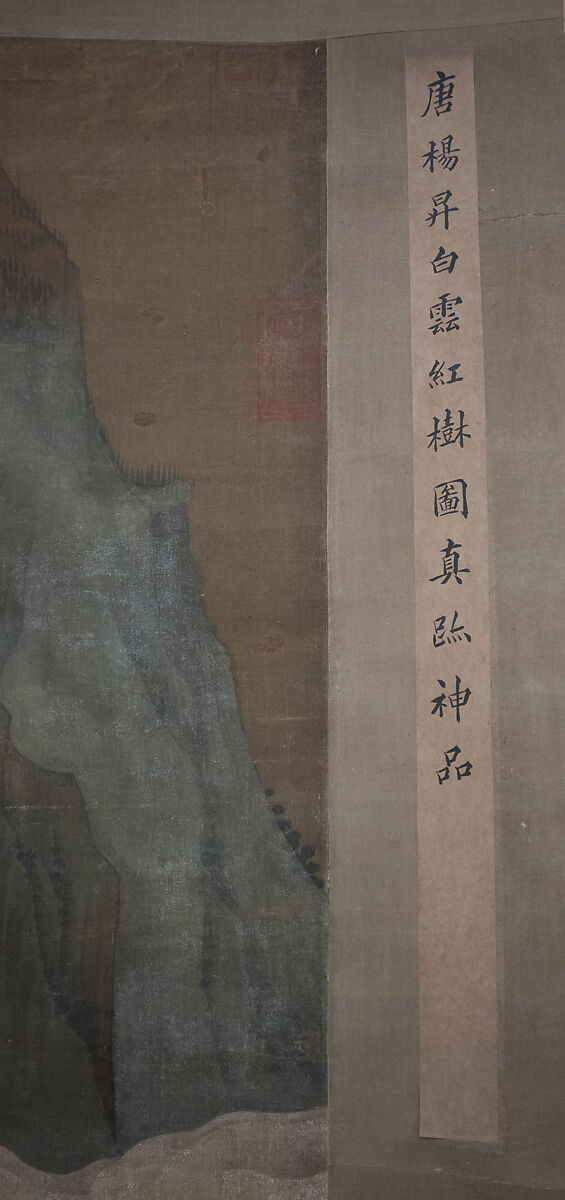 唐楊昇白雲紅樹圖真跡神品